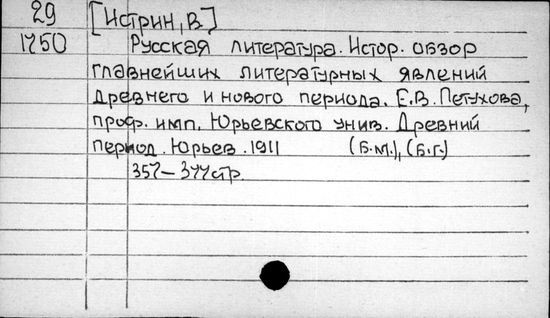 29 [Истрин, В.]
1750 Русская литература. Истор. обзор
главнейших литературных явлений
древнего и нового периода. Е.В. Петухова,
проф. имп. Юрьевского унив. Древний
период. Юрьев. 1911 (б.м.), (б.г.)
357-377 стр.